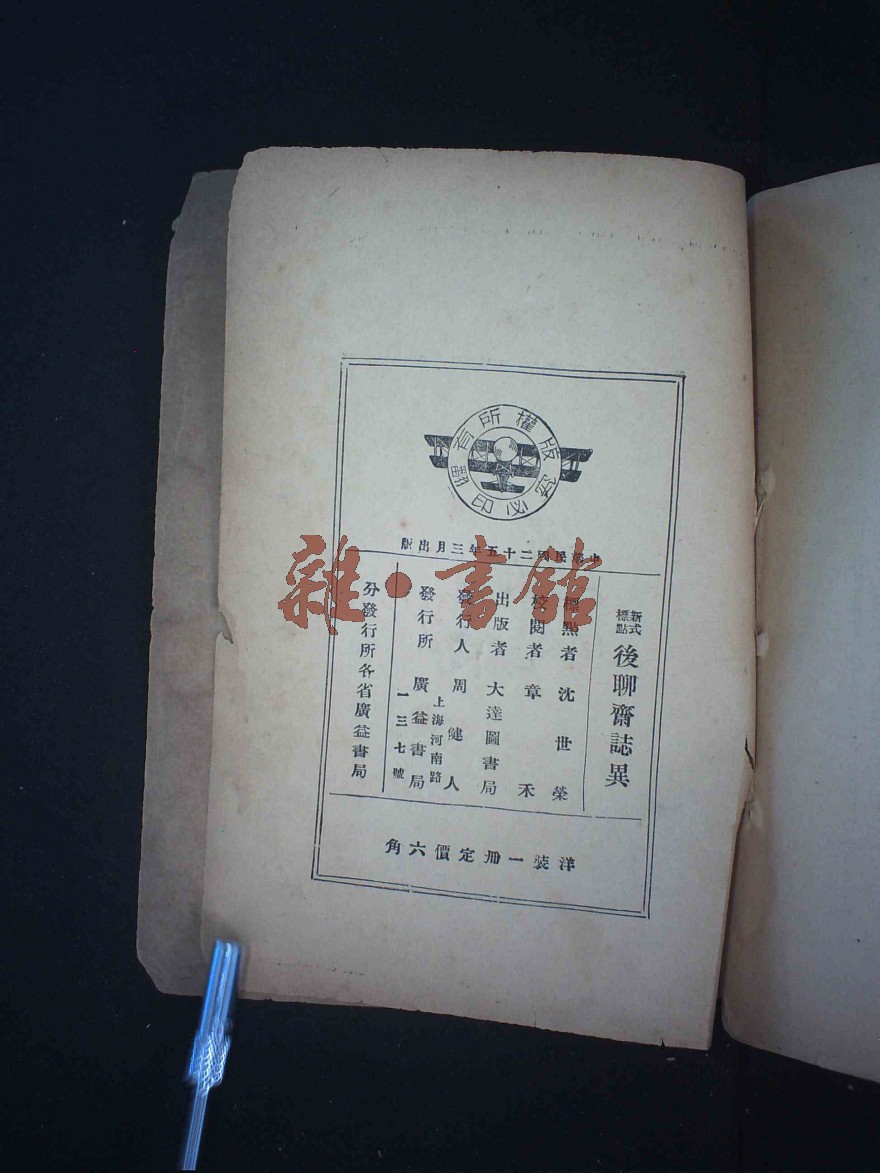 版權所有
翻印必究
中華民國二十五年三月出版
新式標點
後聊齋誌異
標點者 沈世榮
校閱者 章禾
出版者 大達圖書局
發行人 周健人
上海河南路
發行所 廣益書局
一三七號
分發行所各省廣益書局
洋裝一冊定價六角
雜·書館